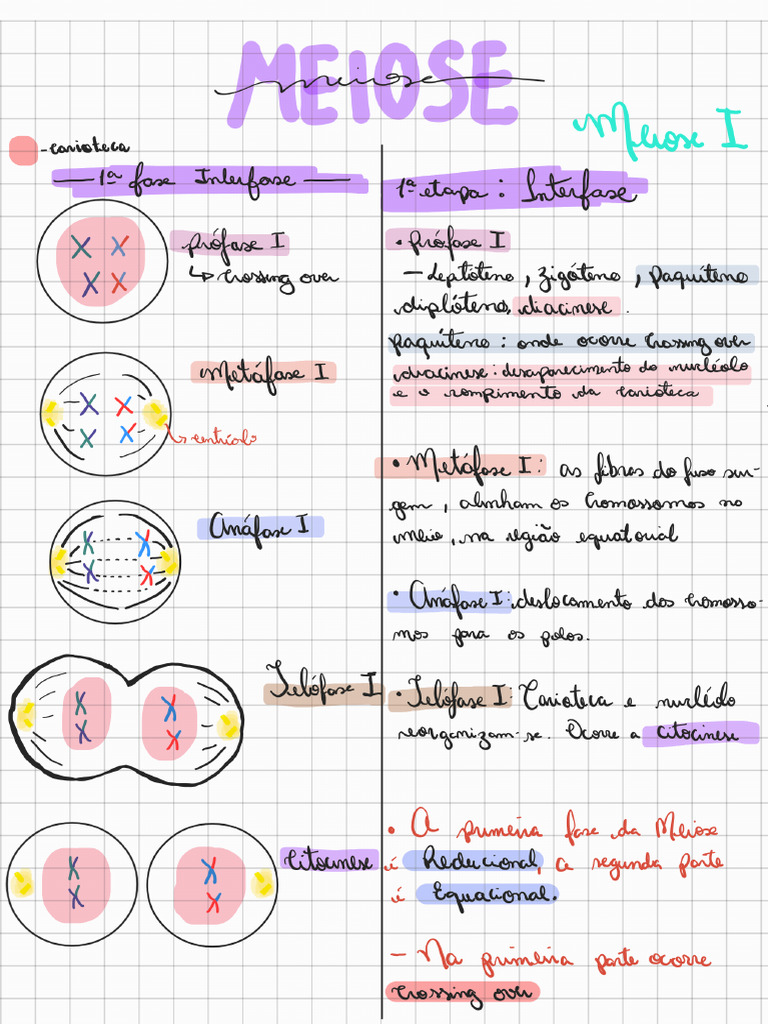 MEIOSE
meiose
Meiose I
- carioteca
1ª fase Interfase
prófase I
↳ crossing over
Metáfase I
centríolo
Anáfase I
Telófase I
Citocinese
1ª etapa: Interfase
• prófase I
- leptóteno, zigóteno, paquíteno
diplóteno, diacinese.
paquíteno: onde ocorre crossing over
diacinese: desaparecimento do nucléolo
e o rompimento da carioteca
• Metáfase I: as fibras do fuso sur-
gem, alinham os cromossomos no
meio, na região equatorial
• Anáfase I: deslocamento dos cromosso-
mos para os polos.
• Telófase I: Carioteca e nucléolo
reorganizam-se. Ocorre a citocinese
• A primeira fase da Meiose
é Reducional, a segunda parte
é Equacional.
- Na primeira parte ocorre
crossing over